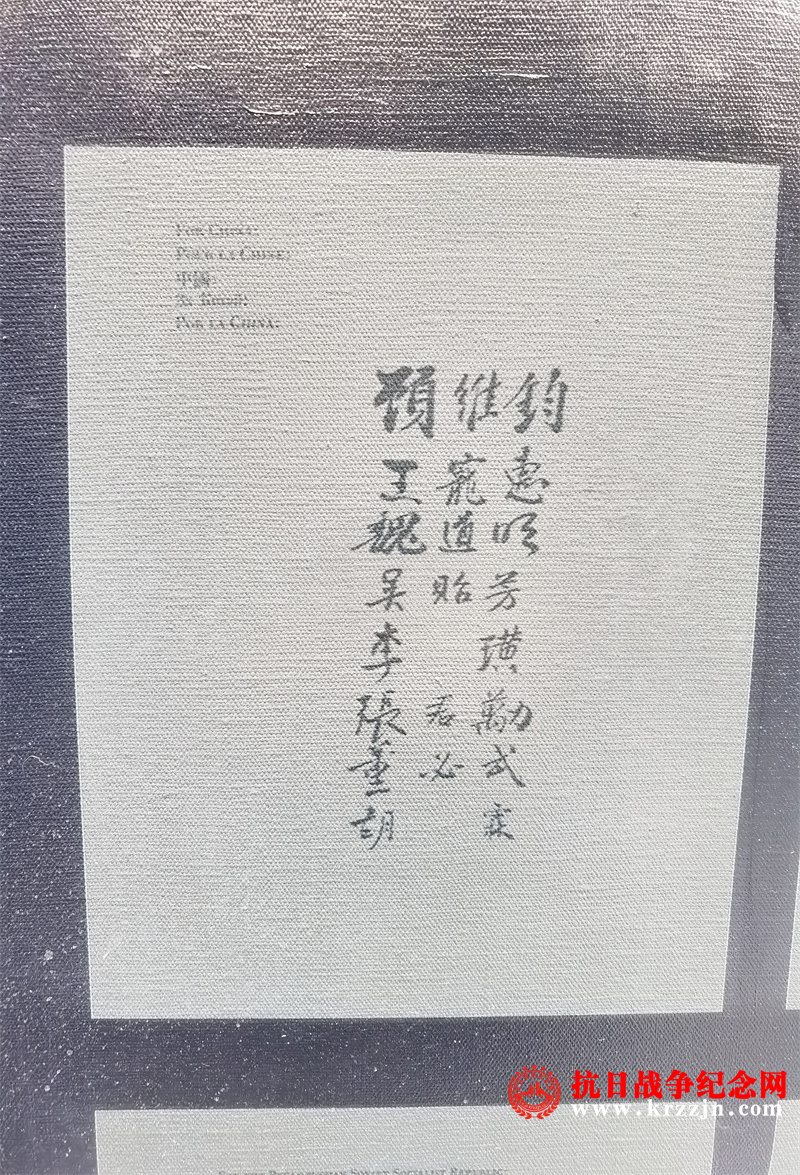 FOR CHINA:
POUR LA CHINE:
中國:
За Китай:
POR LA CHINA:
顧維鈞
王寵惠
魏道明
吳貽芳
李璜
張君勱
董必武
胡霖
抗日战争纪念网
www.krzzjn.com
SOVIET SOCIALIST REPUBLIC: